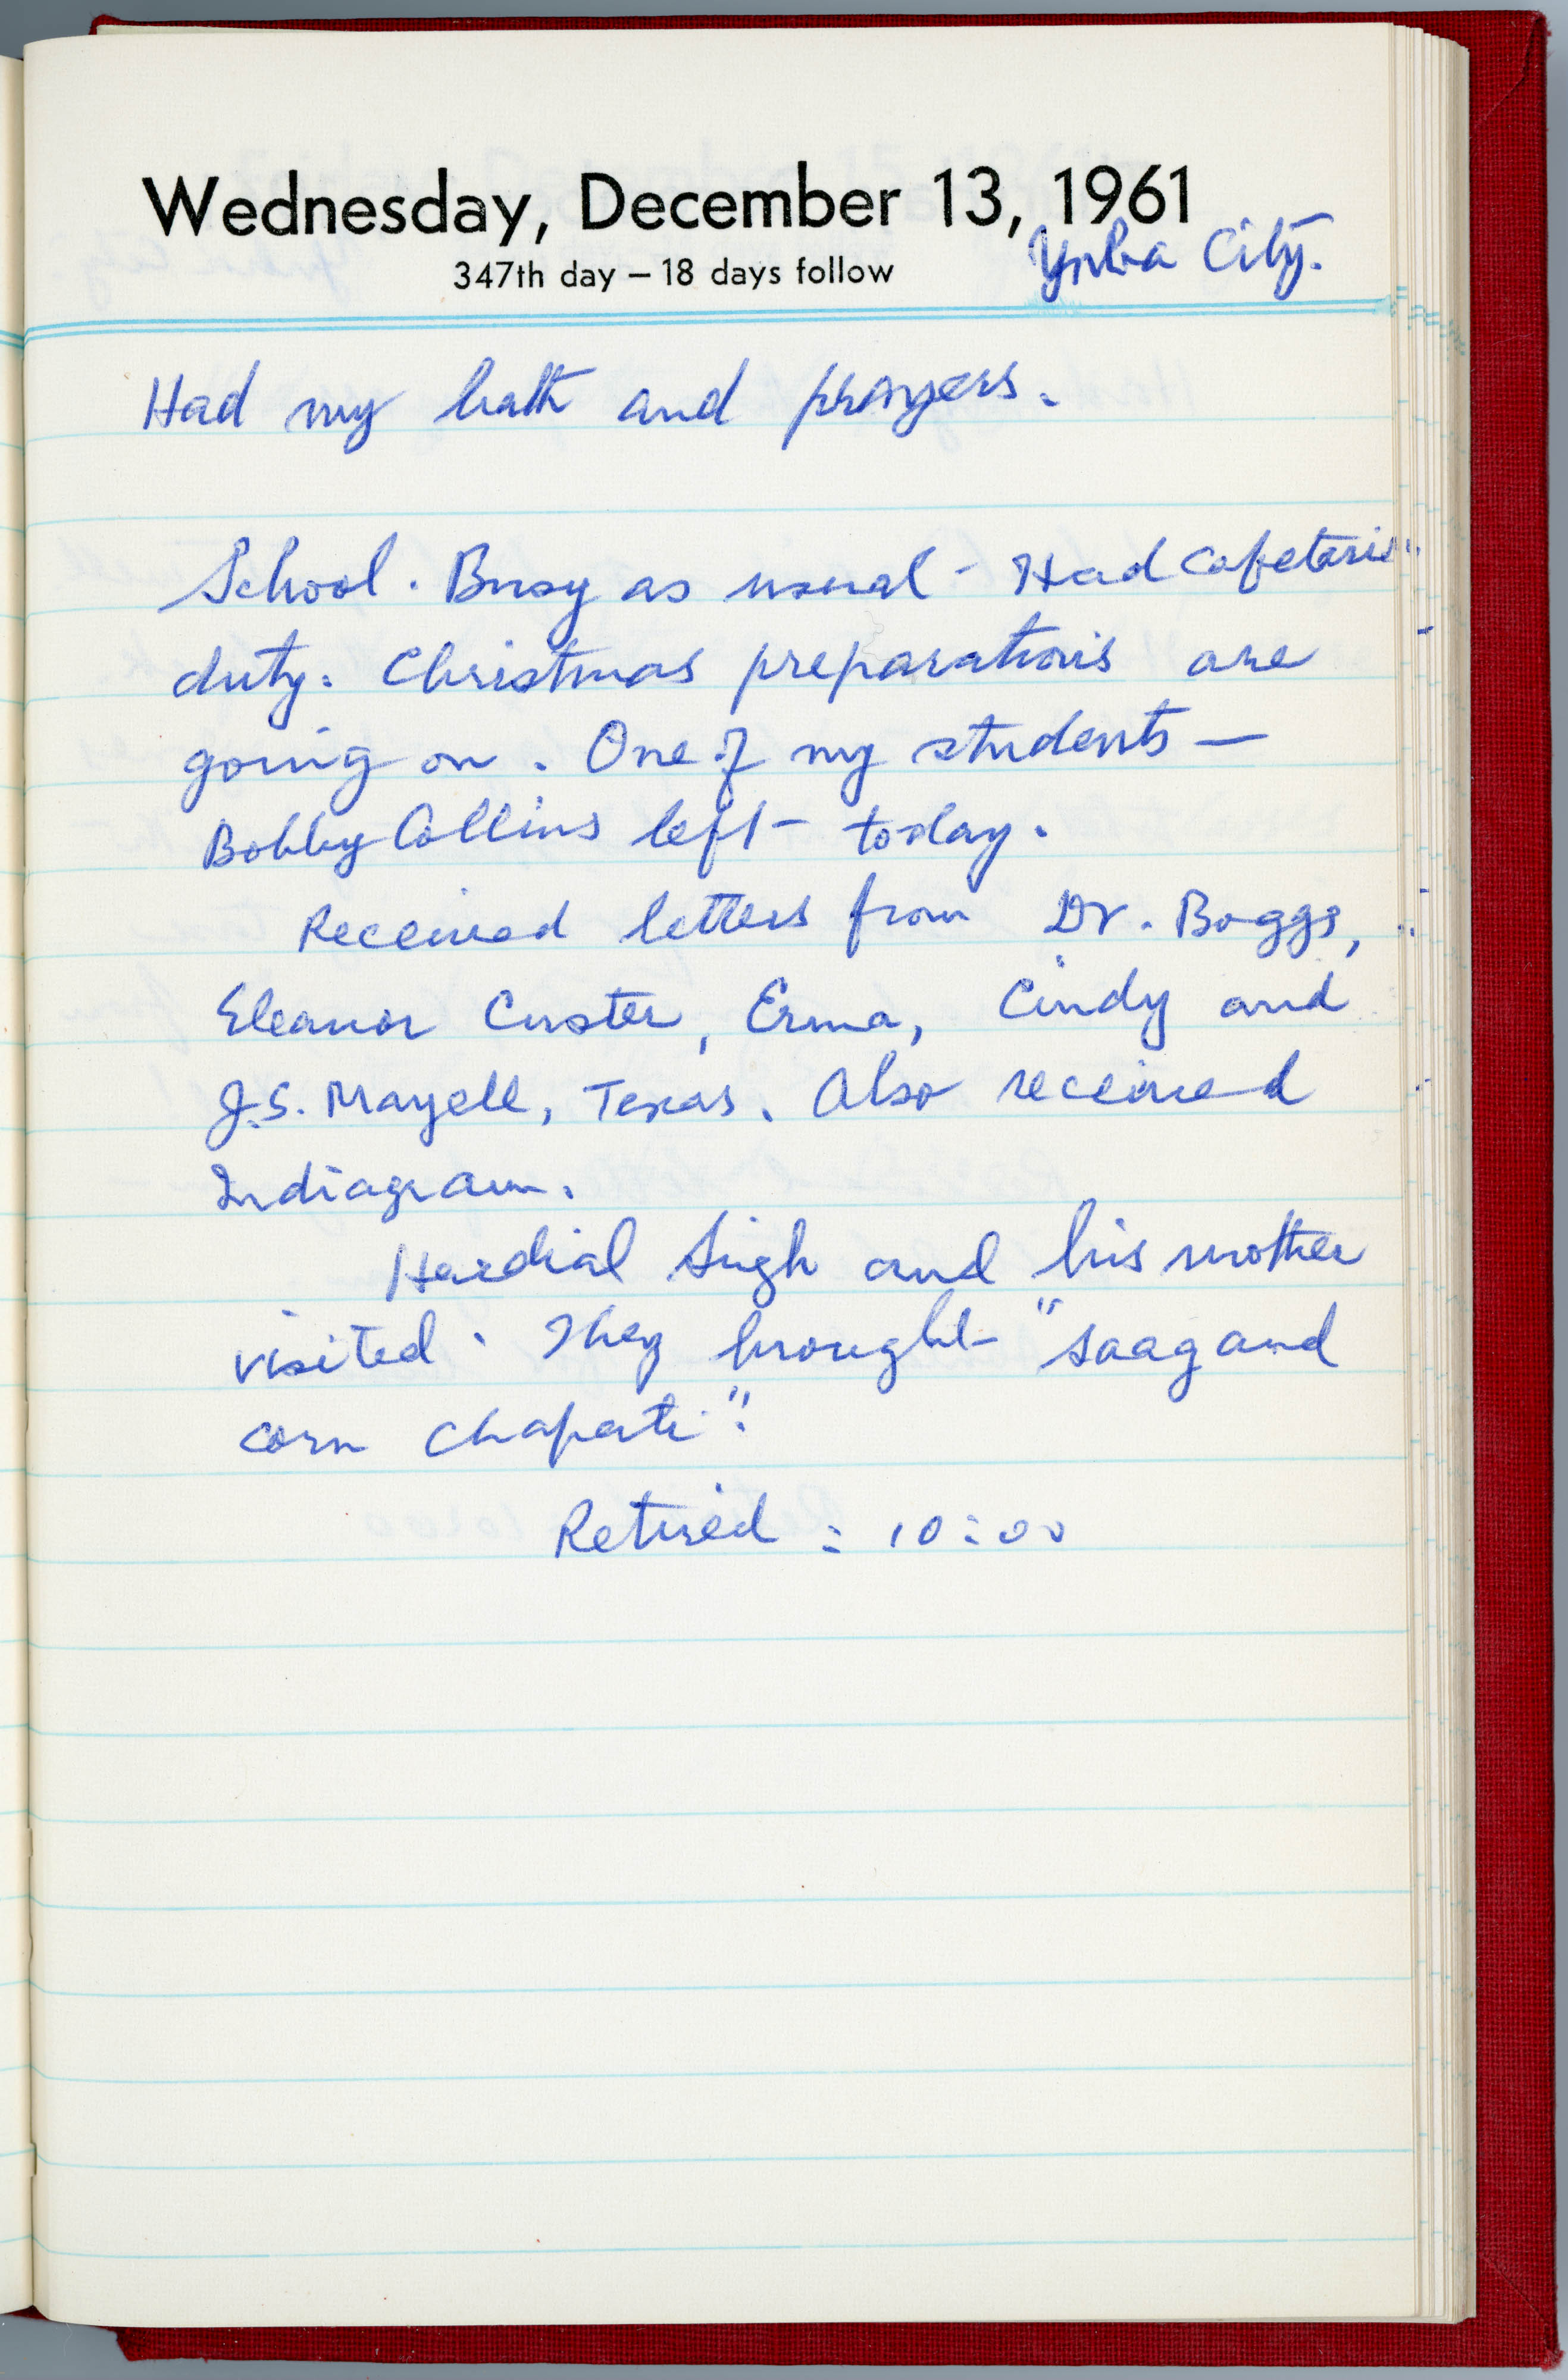 Wednesday, December 13, 1961
347th day – 18 days follow
Yuba City.
Had my bath and prayers.
School. Busy as usual - Had cafeteria
duty. Christmas preparations are
going on. One of my students —
Bobby Collins left today.
Received letters from Dr. Boggs,
Eleanor Custer, Erma, Cindy and
J.S. Mayell, Texas. Also received
Indiagram.
Hardial Singh and his mother
visited. They brought "saag and
corn chapati".
Retired : 10:00